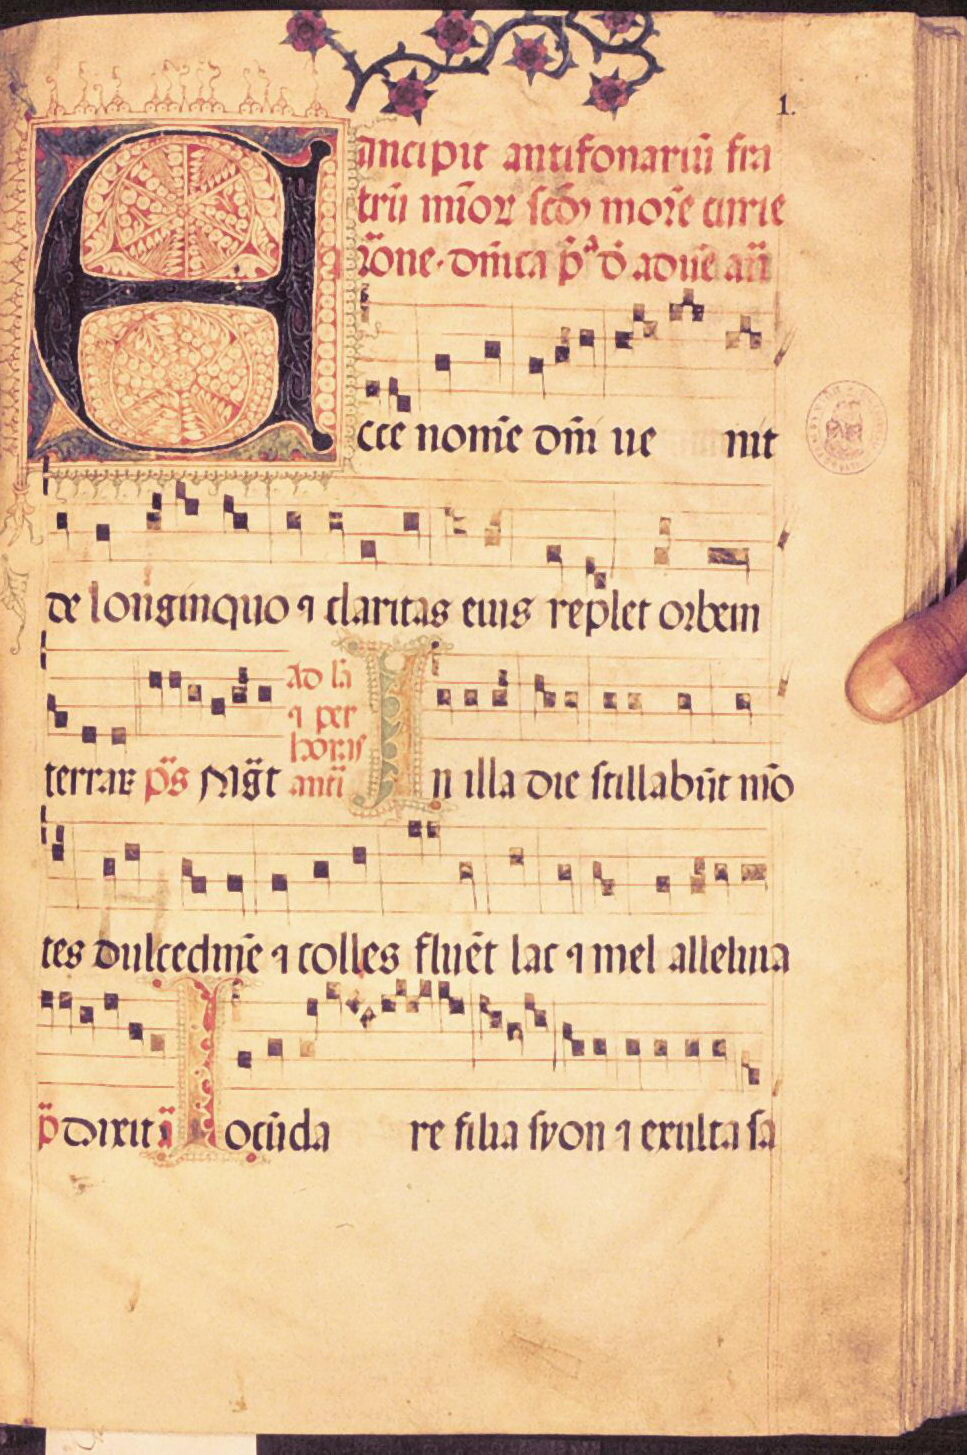 1.
Incipit antifonariũ fra
trũ mĩoꝝ scðʒ morẽ curie
Rõne. dñica pª d̃ aduẽ añ
Ecce nomẽ dñi ue nit
de longinquo ⁊ claritas eius replet orbem
terrarꝝ p̃s Mg̃t
ad la
⁊ per
horas
antĩ
In illa die stillabũt mõ
tes dulcedinẽ ⁊ colles fluẽt lac ⁊ mel alleluia
p̃ Dixit ã Iocũda re filia syon ⁊ exulta sa